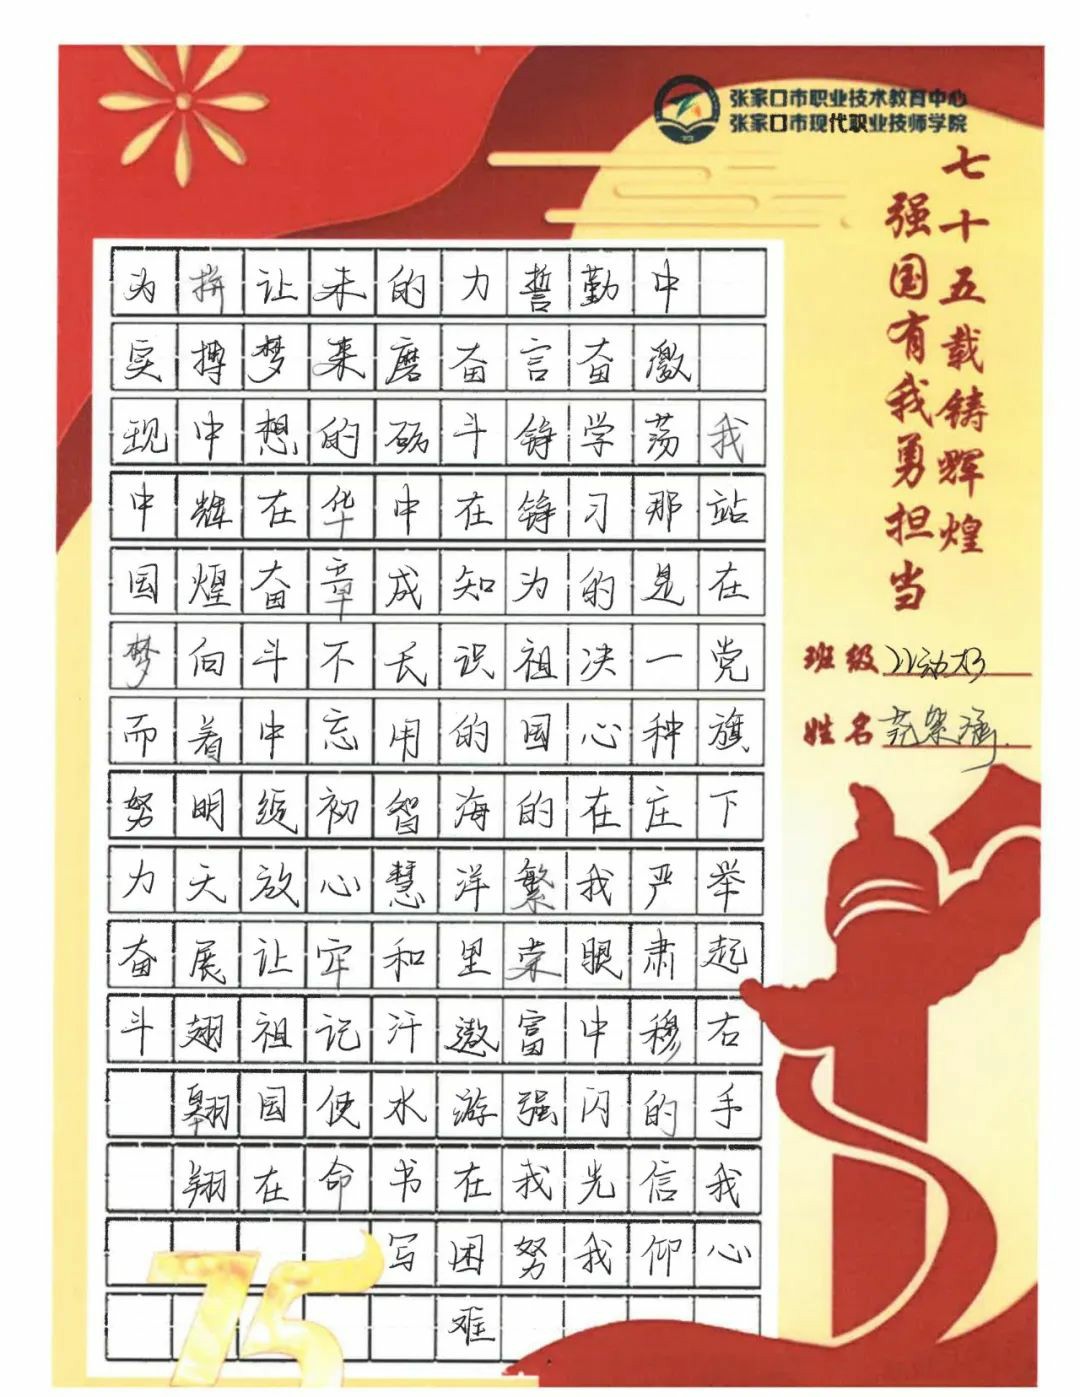 张家口市职业技术教育中心
张家口市现代职业技师学院
七十五载铸辉煌
强国有我勇担当
班级
姓名
我站在党旗下举起右手我心
中激荡那是一种庄严肃穆的信仰
勤奋学习的决心在我眼中闪光我
誓言铮铮为祖国的繁荣富强我努
力奋斗在知识的海洋里遨游在困难
的磨砺中成长用智慧和汗水书写
未来的华章不忘初心牢记使命
让梦想在奋斗中绽放让祖国在
拼搏中辉煌向着明天展翅翱翔
为实现中国梦而努力奋斗
75